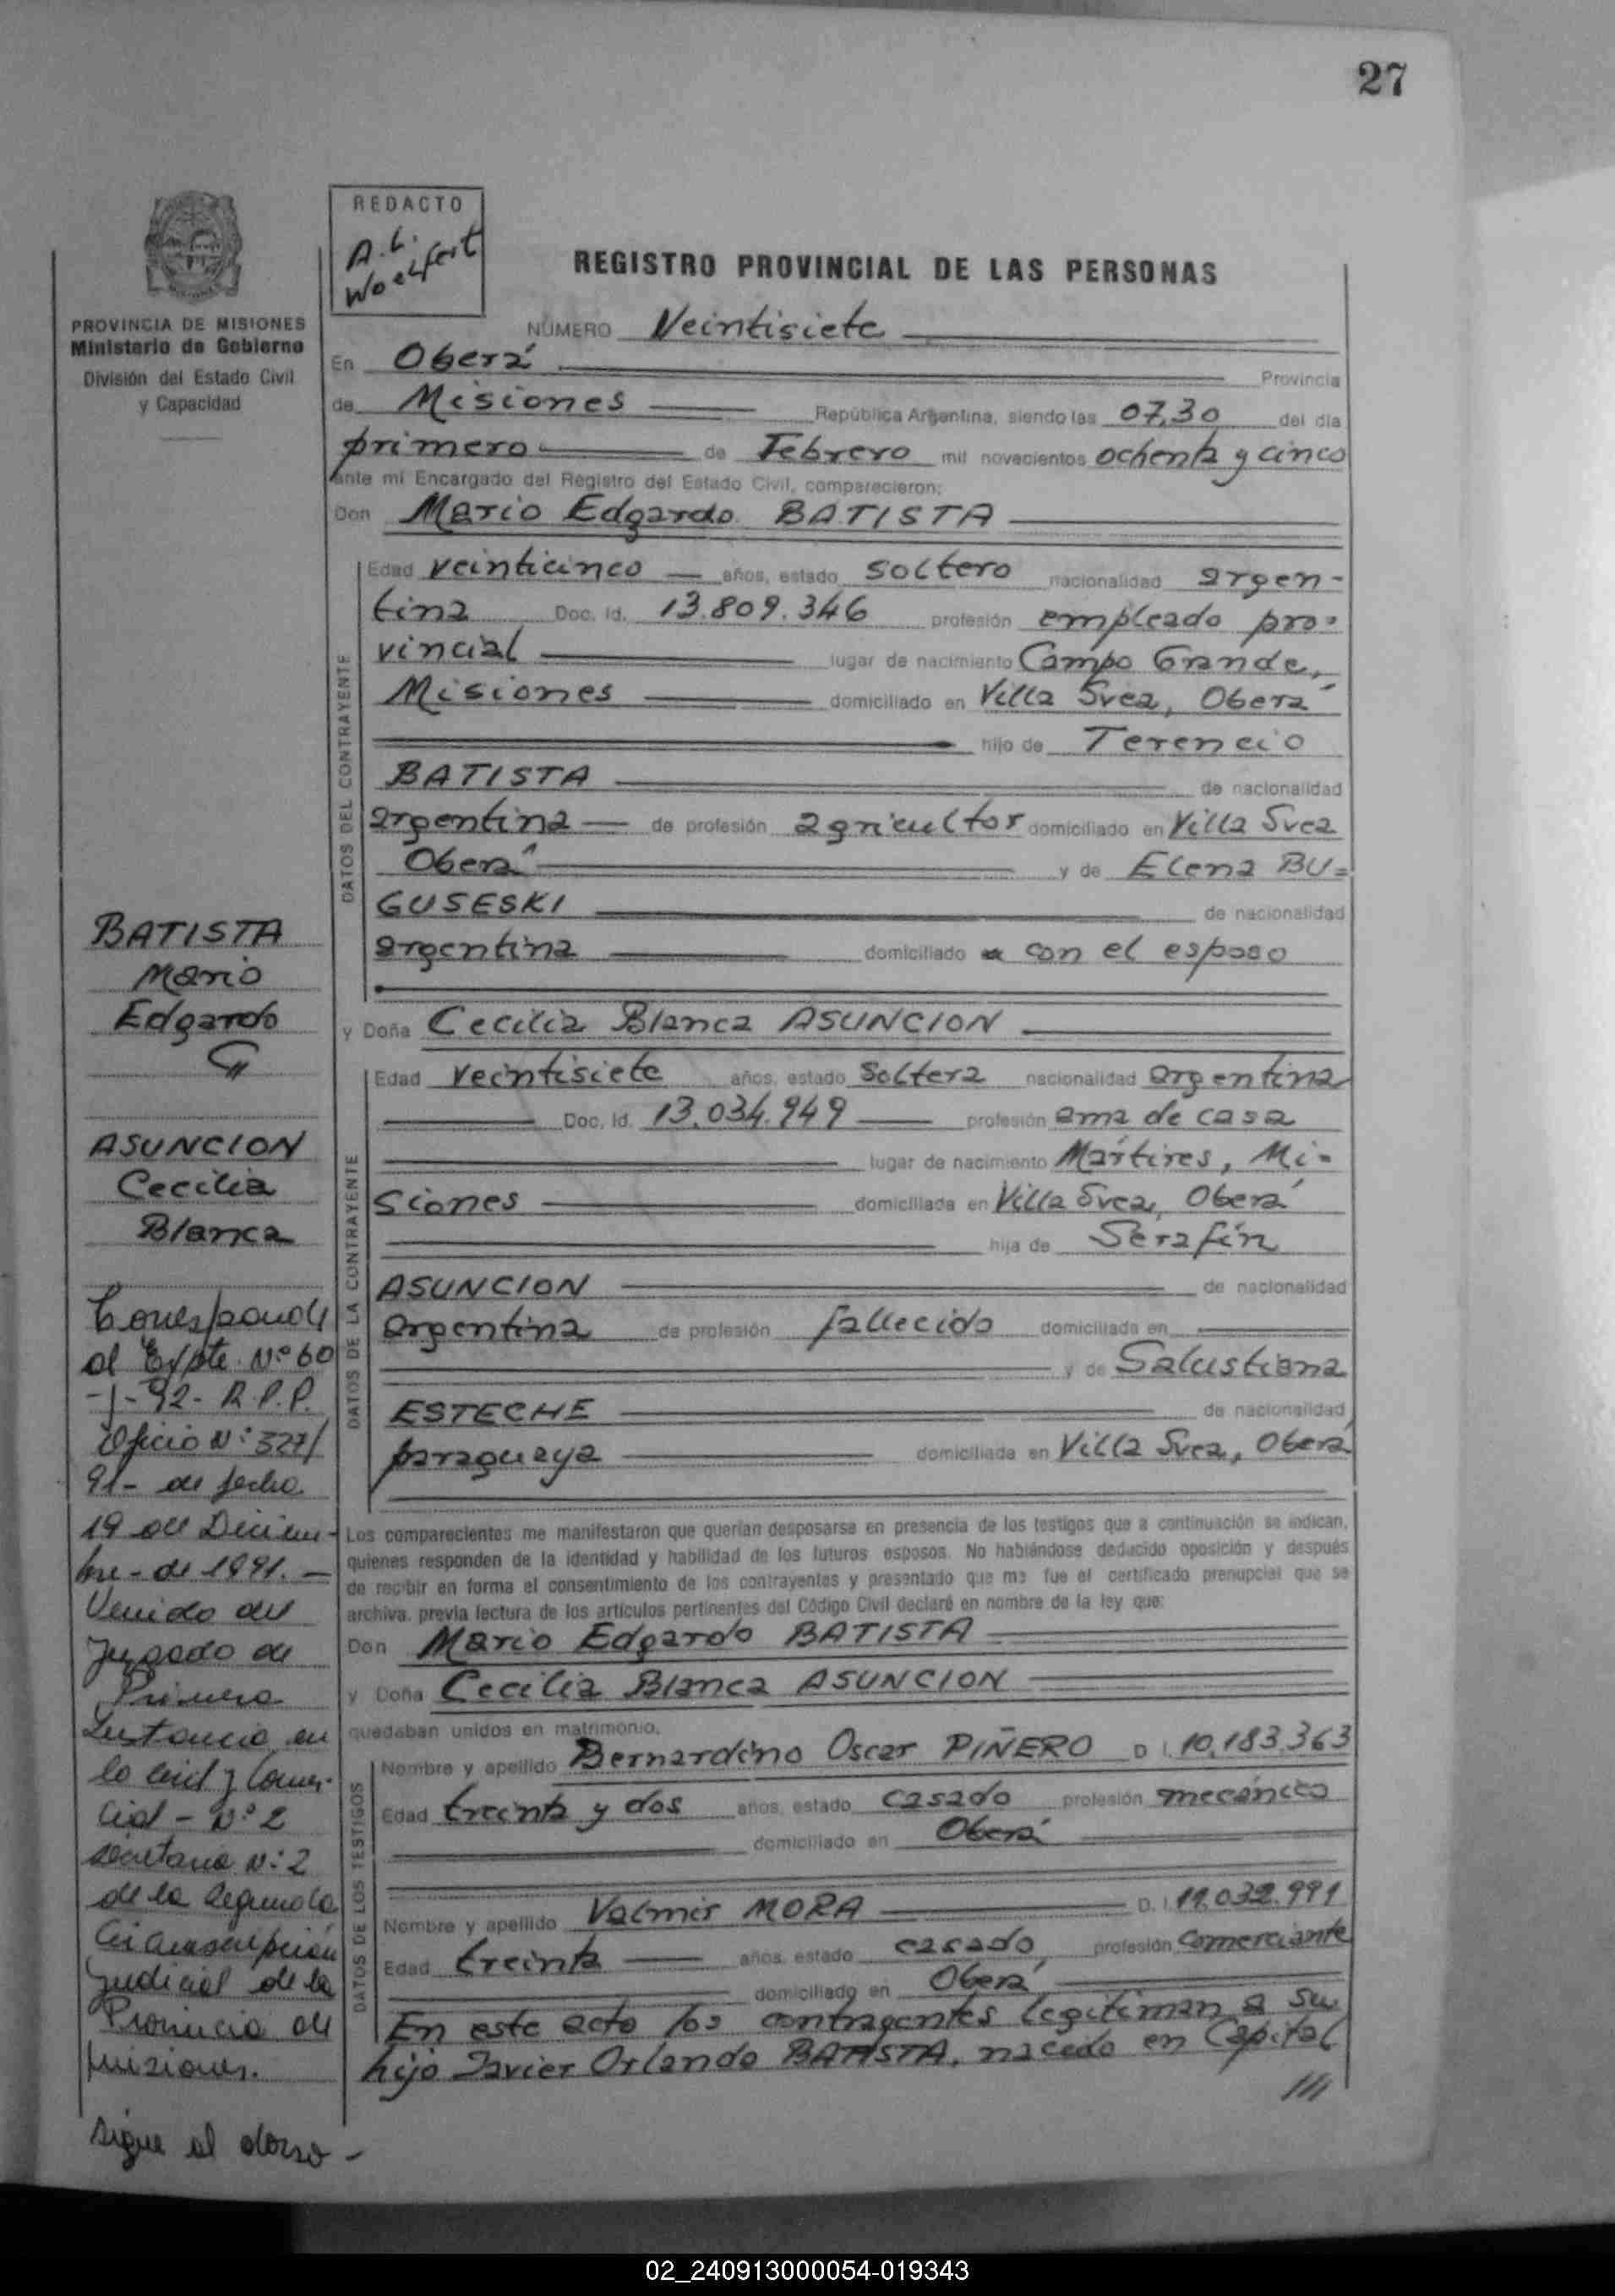 27
REDACTO
A. L.
Woelfert
REGISTRO PROVINCIAL DE LAS PERSONAS
PROVINCIA DE MISIONES
Ministerio de Gobierno
División del Estado Civil
y Capacidad
NÚMERO Veintisiete
En Oberá Provincia
de Misiones República Argentina, siendo las 07,30 del día
primero de Febrero mil novecientos ochenta y cinco
ante mi Encargado del Registro del Estado Civil, comparecieron:
Don Mario Edgardo BATISTA
DATOS DEL CONTRAYENTE
Edad veinticinco años, estado soltero nacionalidad argen-
tina Doc. Id. 13.809.346 profesión empleado pro=
vincial lugar de nacimiento Campo Grande,
Misiones domiciliado en Villa Svea, Oberá
hijo de Terencio
BATISTA de nacionalidad
argentina de profesión agricultor domiciliado en Villa Svea
Oberá y de Elena BU=
GUSESKI de nacionalidad
argentina domiciliado con el esposo
y Doña Cecilia Blanca ASUNCION
DATOS DE LA CONTRAYENTE
Edad veintisiete años, estado soltera nacionalidad argentina
Doc. Id. 13.034.949 profesión ama de casa
lugar de nacimiento Mártires, Mi=
siones domiciliada en Villa Svea, Oberá
hija de Serafín
ASUNCION de nacionalidad
argentina de profesión fallecido domiciliada en
y de Salustiana
ESTECHE de nacionalidad
paraguaya domiciliada en Villa Svea, Oberá
Los comparecientes me manifestaron que querían desposarse en presencia de los testigos que a continuación se indican,
quienes responden de la identidad y habilidad de los futuros esposos. No habiéndose deducido oposición y después
de recibir en forma el consentimiento de los contrayentes y presentado que me fue el certificado prenupcial que se
archiva, previa lectura de los artículos pertinentes del Código Civil declaré en nombre de la ley que:
Don Mario Edgardo BATISTA
y Doña Cecilia Blanca ASUNCION
quedaban unidos en matrimonio.
DATOS DE LOS TESTIGOS
Nombre y apellido Bernardino Oscar PIÑERO D.I. 10.183.363
Edad treinta y dos años, estado casado profesión mecánico
domiciliado en Oberá
Nombre y apellido Valmir MORA D.I. 11.032.991
Edad treinta años, estado casado profesión comerciante
domiciliado en Oberá
En este acto los contrayentes legitiman a su
hijo Javier Orlando BATISTA, nacido en Capital
///
BATISTA
Mario
Edgardo
ASUNCION
Cecilia
Blanca
Corresponde
al Expte. Nº 60
-J-92- R.P.P.
Oficio Nº 327/
91- de fecha
19 de Diciem-
bre - de 1991. -
Venido del
Juzgado de
Primera
Instancia en
lo civil y Comer-
cial - Nº 2
secretaria Nº 2
de la segunda
Circunscripción
Judicial de la
Provincia de
Misiones.
Sigue al dorso -
02_240913000054-019343